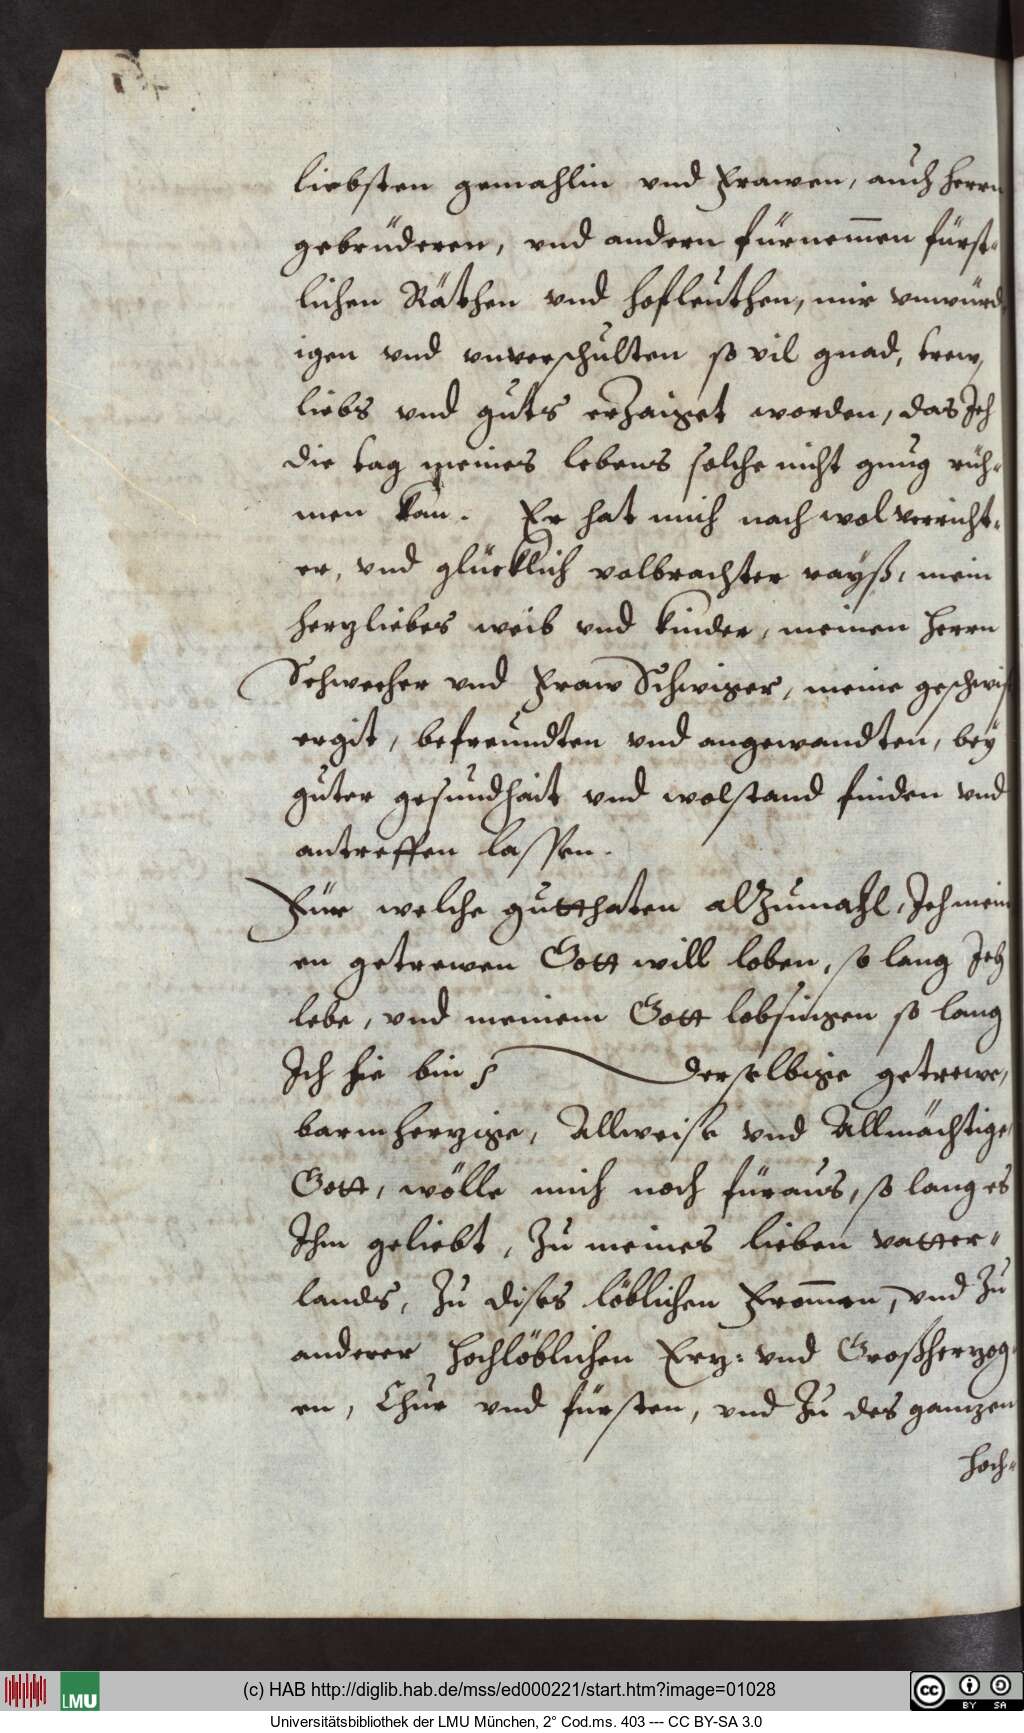 liebsten gemahlin vnd Frawen, auch herrn
gebrüderen, vnd andern fürnem̅en fürst-
lichen Räthen vnd hofleuthen, mir vnwürd
igen vnd vnverschulten so vil gnad, trew,
liebs vnd guts erzaiget worden, das Ich
die tag meines lebens solche nicht gnug rüh-
men kan. Er hat mich nach wol verricht-
er, vnd glücklich volbrachter rayß, mein
herzliebes weib vnd kinder, meinen herrn
Schwecher vnd Fraw Schwiger, meine geschwist
ergit, befreundten vnd angewandten, bey
guter gesundhait vnd wolstand finden vnd
antreffen lassen.
Für welche gutthaten alzumahl, Ich mein
en getrewen Gott will loben, so lang Ich
lebe, vnd meinem Gott lobsingen so lang
Ich hie bin derselbige getrewe,
barmherzige, Allweise vnd Allmächtige
Gott, wölle mich noch füraus, so lang es
Ihm geliebt, Zu meines lieben vatter-
lands, Zu dises löblichen From̅en, vnd Zu
anderer hochlöblichen Erz: vnd Großherzog-
en, Chur vnd fürsten, vnd Zu des ganzen
hoch-
LMU
(c) HAB http://diglib.hab.de/mss/ed000221/start.htm?image=01028
cc BY SA
Universitätsbibliothek der LMU München, 2° Cod.ms. 403 --- CC BY-SA 3.0